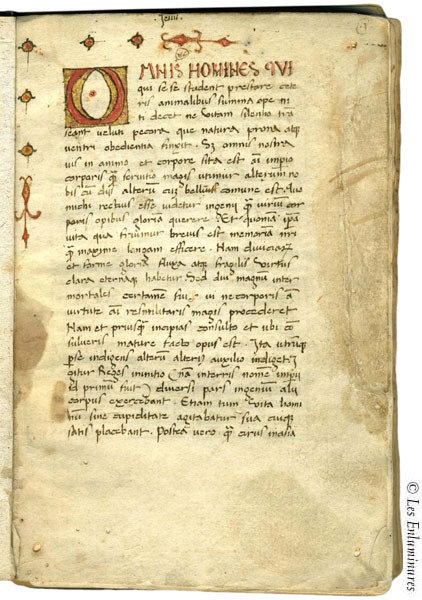 OMNIS HOMINES QVI
qui se se student prestare cete
ris animalibus summa ope ni
ti decet ne vitam silentio tra
seant veluti pecora que natura prona atq
ventri obedientia finxit. Sz omnis nostra
vis in animo et corpore sita est ai impio
corporis q servitio magis utimur alterum no
bis cu dijs alteru cuz belluis comune est
michi rectius esse videtur ingenij q viriu cor
poris opibus gloria querere. Et quonia ipa
vita qua fruimur brevis est memoria nri
q maxime longam efficere. Nam
et forme gloria fluxa atq fragilis virtus
clara eternaq habetur Sed diu magnu inter
mortales certamen fuit vi ne corporis a
virtute ai res militaris magis procederet
Nam et priusq incipias consulto et ubi co
sulveris mature facto opus est. Ita utruq
per se indigens alteru alterius auxilio indiget. I
gitur Reges initio (na in terris nome impij
id primu fuit) diversi pars ingeniu alij
corpus exercebant. Etiam tum vita homi
nu sine cupiditate agitabatur sua cuiq
satis placebant. Postea vero q cirus in asia
© Les Enluminures